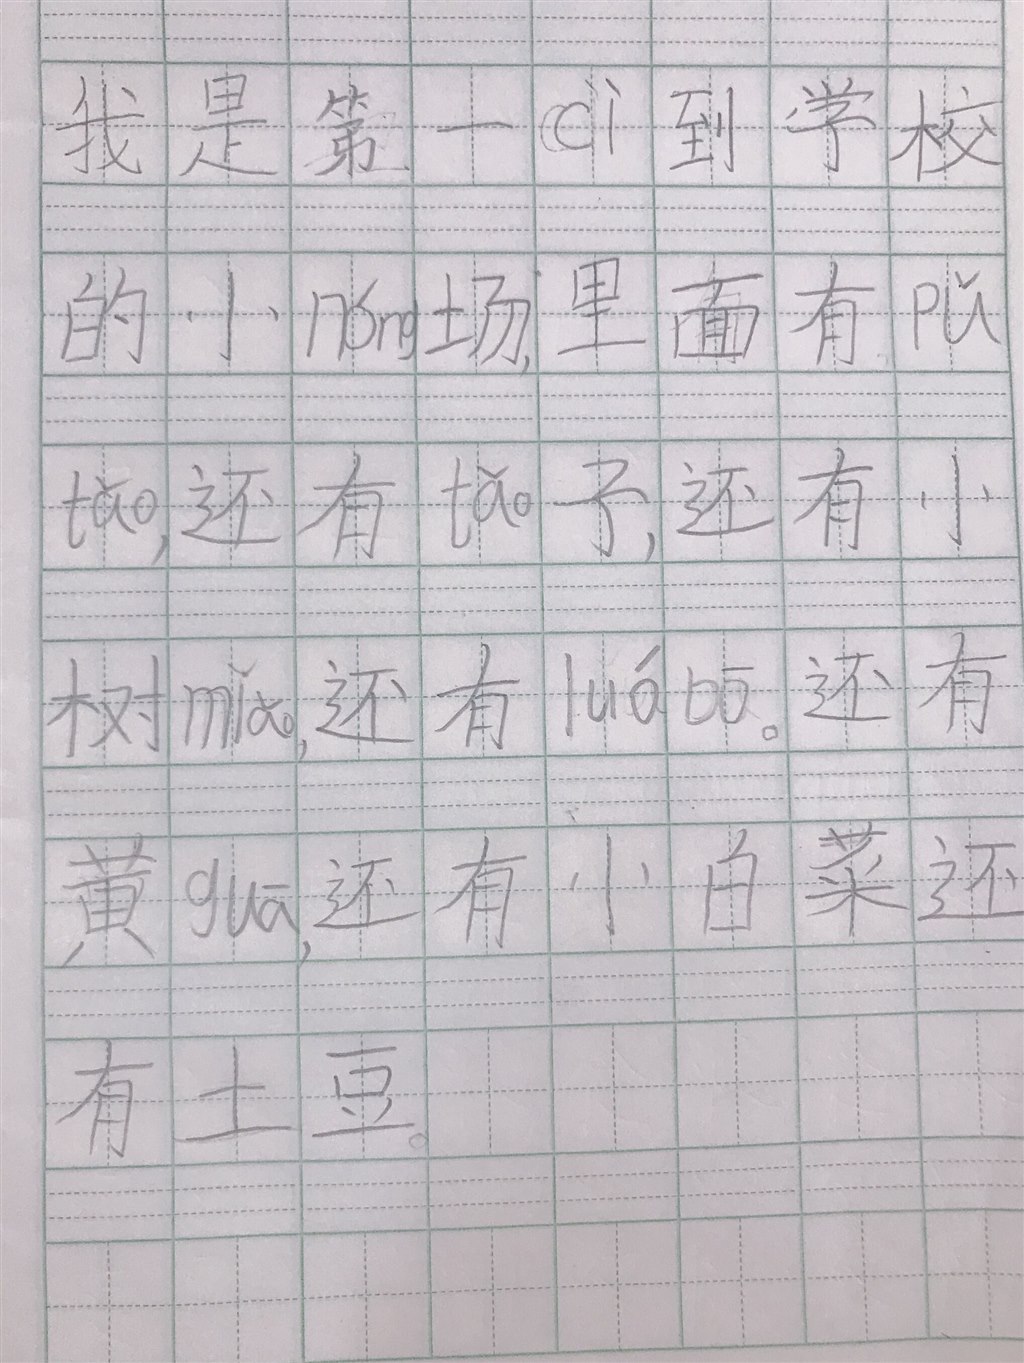 我是第一cì到学校
的小nóng场,里面有pǔ
tǎo,还有tǎo子,还有小
树miǎo,还有luóbō。还有
黄guā,还有小白菜还
有土豆。